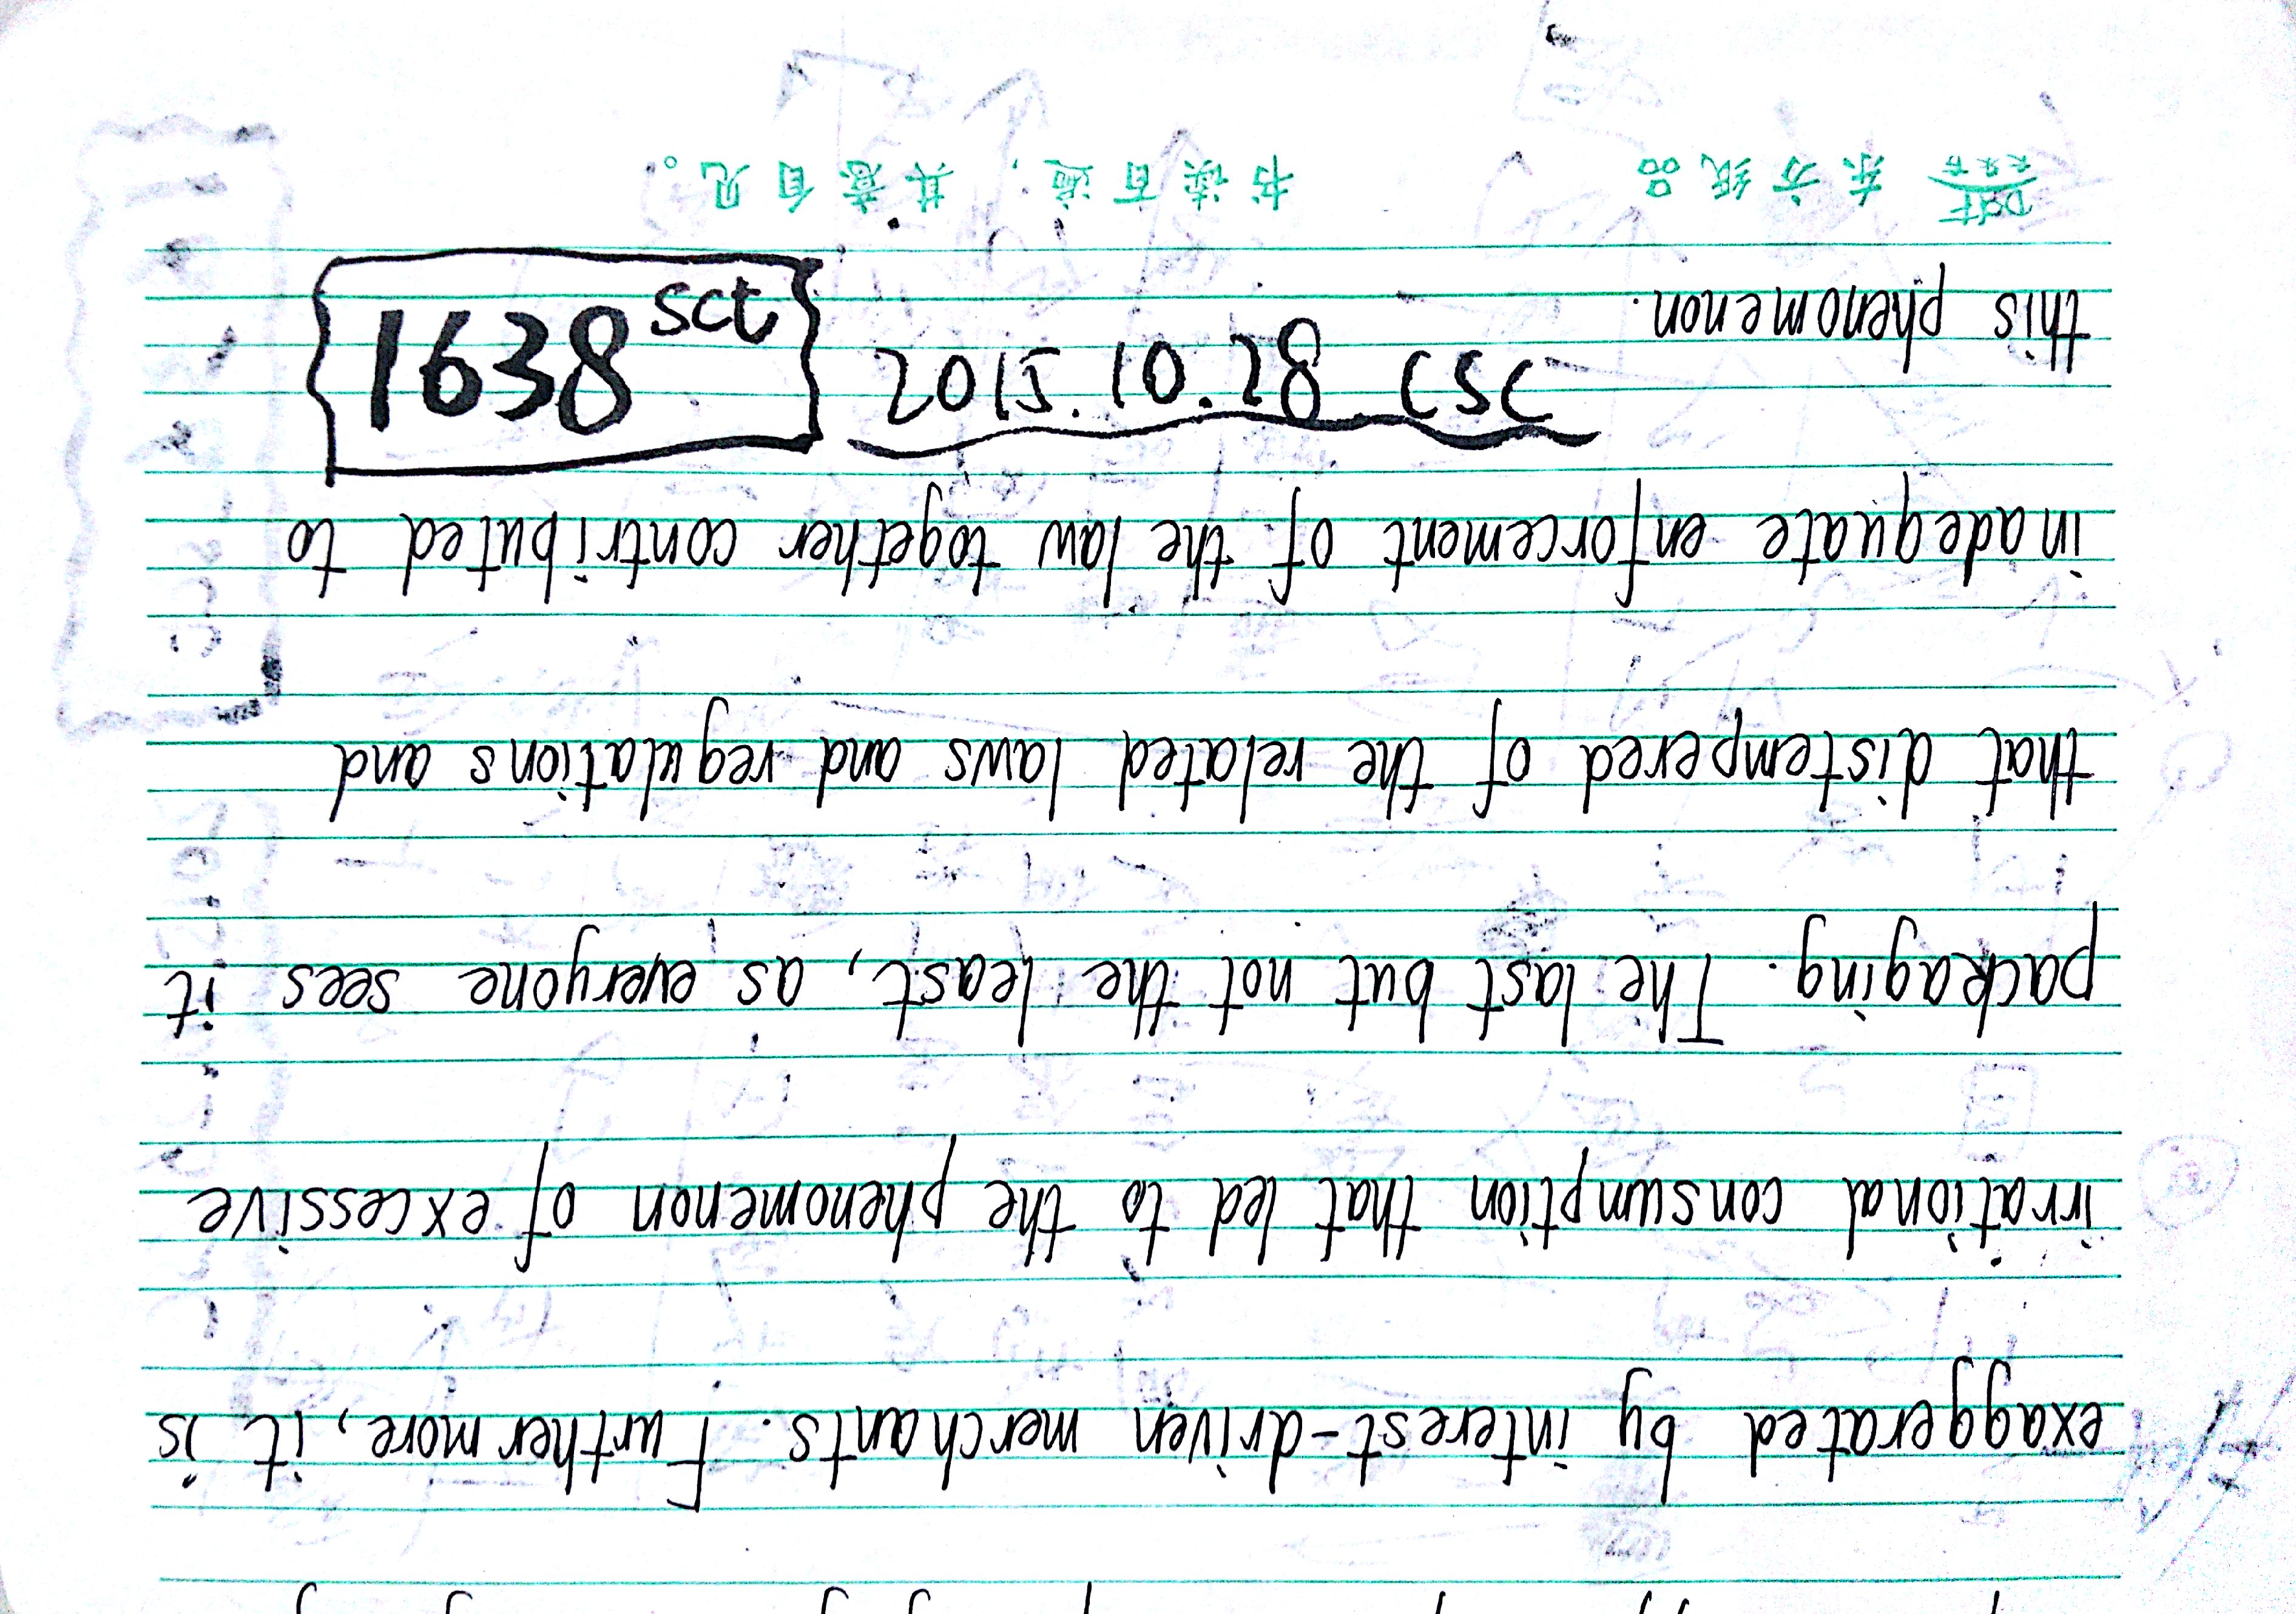 exaggerated by interest-driven merchants. Furthermore, it is
irrational consumption that led to the phenomenon of excessive
packaging. The last but not the least, as everyone sees it
that distempered of the related laws and regulations and
inadequate enforcement of the law together contributed to
this phenomenon.
2015.10.28 CSC
1638 sct
东方纸品 书读百遍，其意自见。